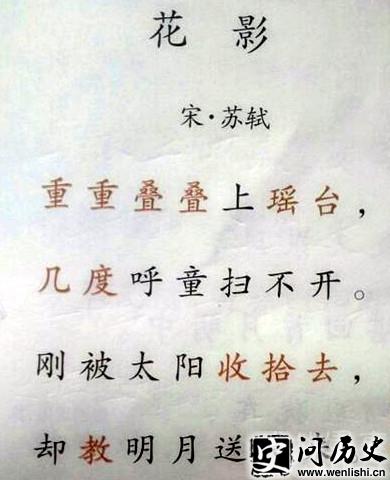 花 影
宋·苏轼
重重叠叠上瑶台，
几度呼童扫不开。
刚被太阳收拾去，
却教明月送
问历史
www.wenlishi.cn